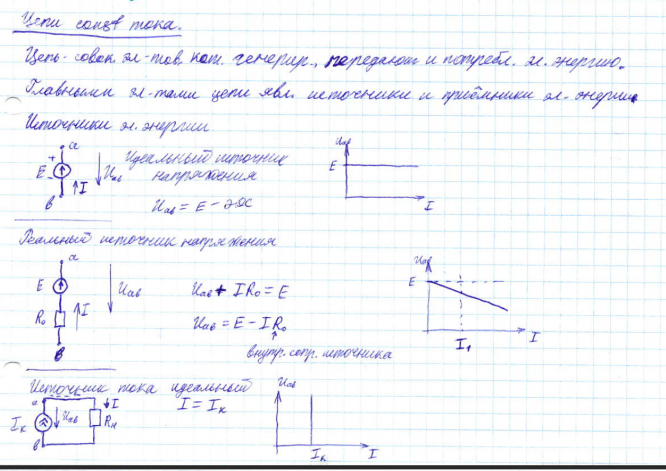 Цепи const тока.
Цепь - совок. эл-тов, кот. генерир., передают и потребл. эл. энергию.
Главными эл-тами цепи явл. источники и приёмники эл. энергии
Источники эл. энергии
a
+
E
-
I
Uab
b
Идеальный источник
напряжения
Uab = E - ЭДС
Uab
E
I
Реальный источник напряжения
a
E
R₀
I
Uab
b
Uab + IR₀ = E
Uab = E - IR₀
внутр. сопр. источника
Uab
E
I₁
I
Источник тока идеальный
a
Iк
Uab
I
Rн
b
I = Iк
Uab
Iк
I